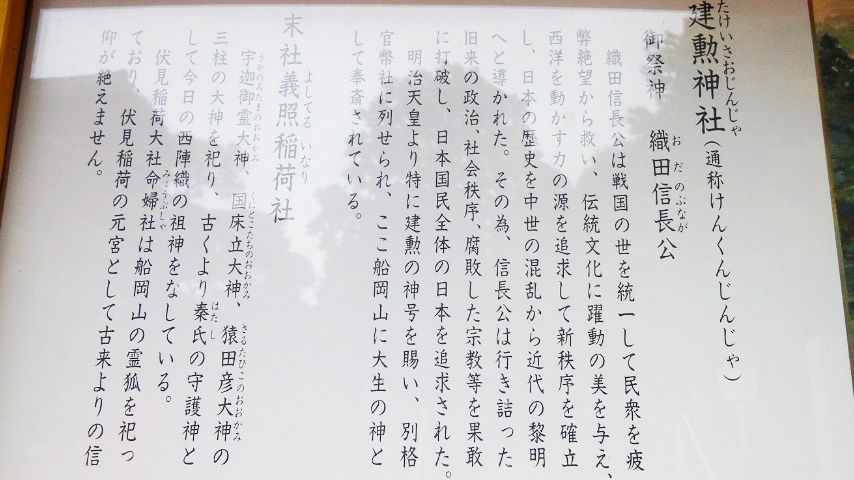 建勲神社(通称けんくんじんじゃ)
たけいさおじんじゃ
御祭神 織田信長公
おだのぶなが
織田信長公は戦国の世を統一して民衆を疲
弊絶望から救い、伝統文化に躍動の美を与え、
西洋を動かす力の源を追求して新秩序を確立
し、日本の歴史を中世の混乱から近代の黎明
へと導かれた。その為、信長公は行き詰った
旧来の政治、社会秩序、腐敗した宗教等を果敢
に打破し、日本国民全体の日本を追求された。
明治天皇より特に建勲の神号を賜い、別格
官幣社に列せられ、ここ船岡山に大生の神と
して奉斎されている。
末社義照稲荷社
よしてるいなり
宇迦御霊大神、国床立大神、猿田彦大神の
うかのみたまのおおかみ くにとこたちのおおかみ さるたひこのおおかみ
三柱の大神を祀り、古くより秦氏の守護神と
はたし
して今日の西陣織の祖神をなしている。
伏見稲荷大社命婦社は船岡山の霊狐を祀っ
みょうぶしゃ
ており、伏見稲荷の元宮として古来よりの信
仰が絶えません。